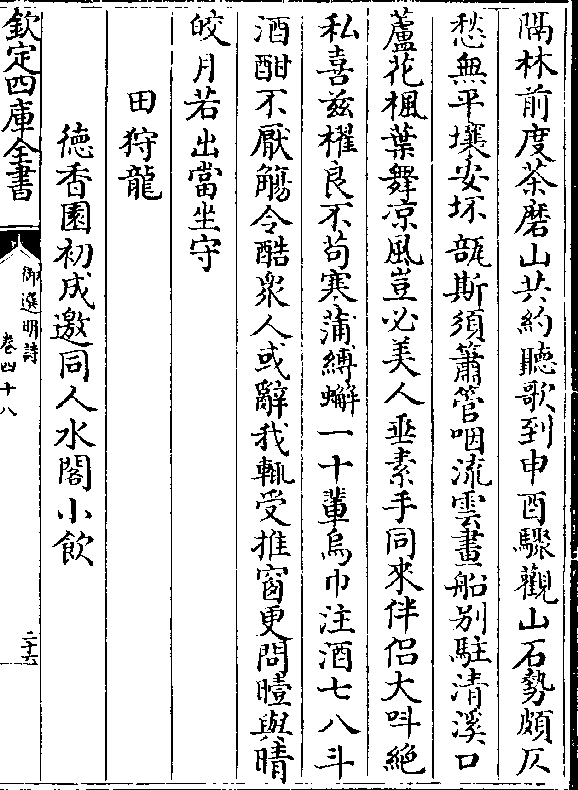 隔林前度茶磨山共約聽歌到申酉驟觀山石勢頗仄
愁無平壤安坏瓿斯須簫管咽流雲畫船别駐清溪口
蘆花楓葉舞凉風豈必美人垂素手同來伴侣大呌絶
私喜兹櫂良不苟寒蒲縛蠏一十輩烏巾注酒七八斗
酒酣不厭觴令酷衆人或辭我輒受推窗更問曀與晴
皎月若出當坐守
田狩龍
徳香園初成邀同人水閣小飲
欽定四庫全書
御選明詩
卷四十八
二十六